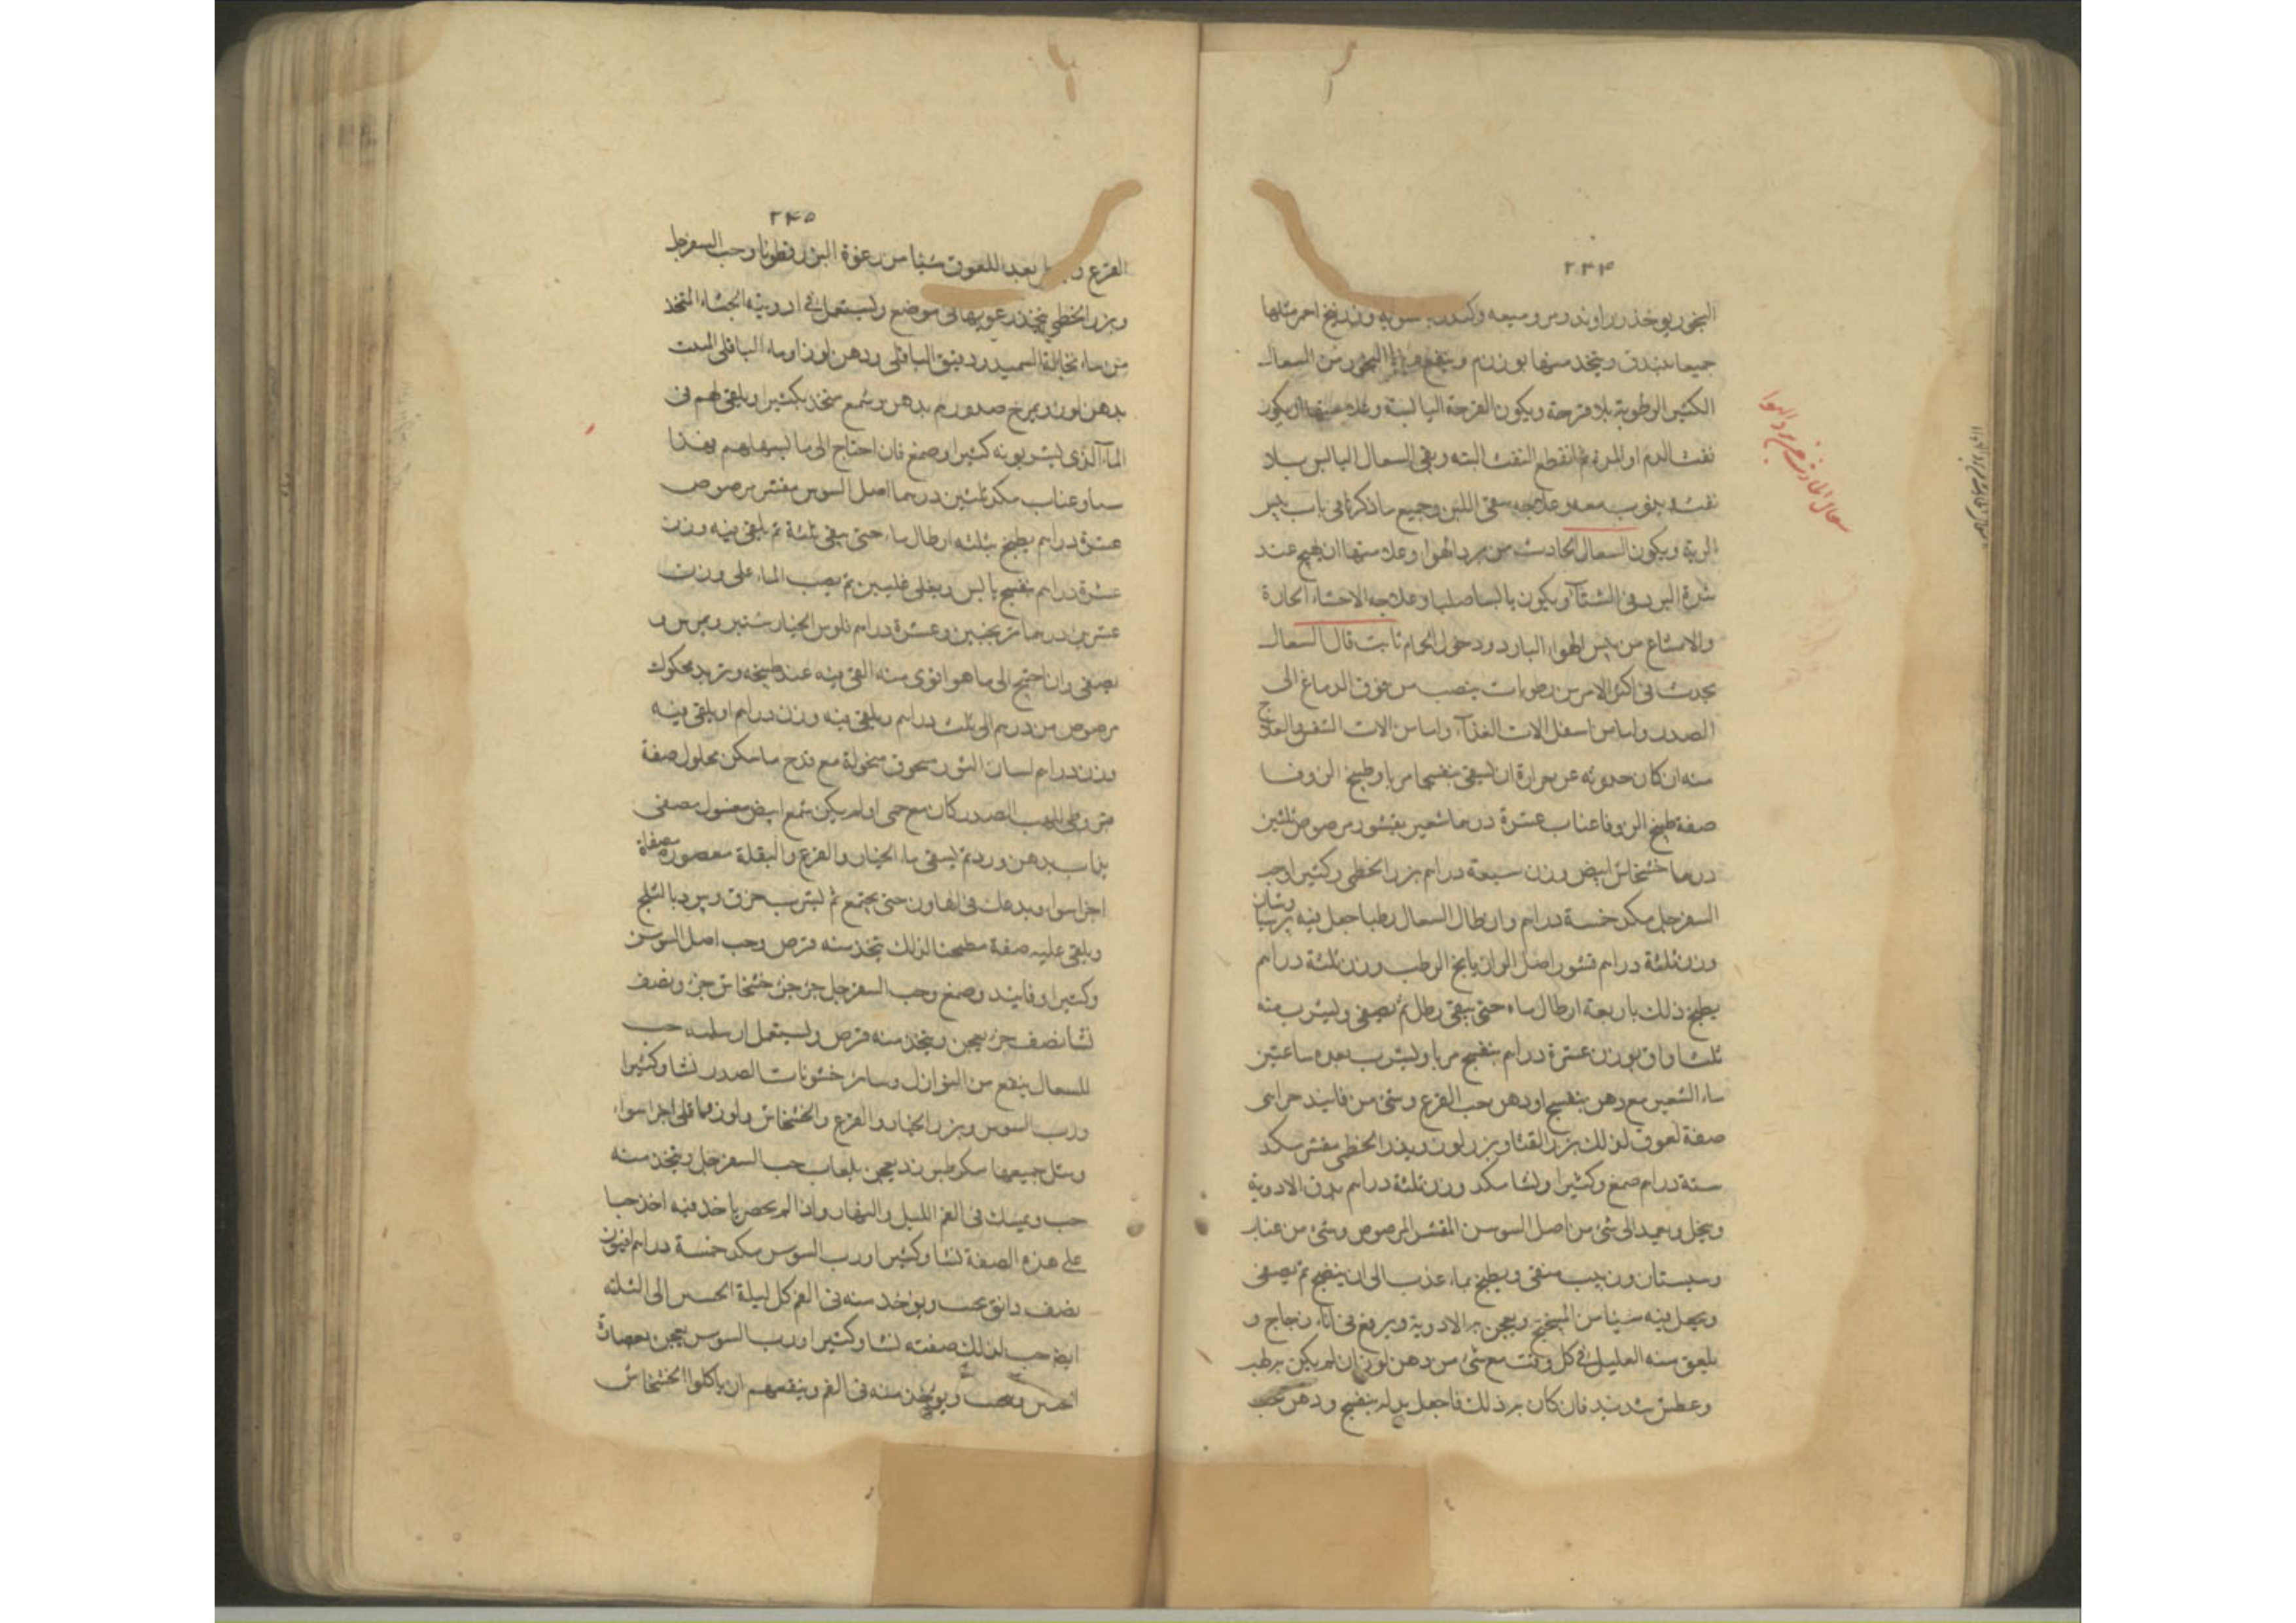 ۲۴۴
البخور يوخذ زراوند ومر وميعه وكندر بالسويه وزرنيخ احمر مثلها
جميعا يبندق ويتخذ منها بوزن درهم وينفع هذا البخور من السعال
الكثير الرطوبة بلا قرحة ويكون القرحة اليابسة وعلامتها ان يكون
نفث الدم او المدة ثم انقطع النفث البته وبقى السعال اليابس بلا
نفث وذوب معه وعلاجه سقى اللبن وجميع ما ذكرنا فى باب يبس
الرية ويكون السعال الحادث من برد الهوا وعلامتها ان يهيج عند
شدة البرد فى الشتآ ويكون يابسا صلبا وعلاجه الاحشاء الحارة
والامتناع من يبس الهواء البارد ودخول الحمام ثابت قال السعال
يحدث فى اكثر الامر من رطوبات ينصب من فوق الدماغ الى
الصدر واما من اسفل الات الغذآء واما من الات التنفس والعلاج
منه ان كان حدوثه عن حرارة ان يسقى بنفسجا مربا وطبيخ الزوفا
صفة طبيخ الزوفا عناب عشرة درهما شعير مقشور مرضوض ثلثين
درهما خشخاش ابيض وزن سبعة دراهم بزر الخطمى وكثيرا وحب
السفرجل مكد خمسة دراهم وان طال السعال رطبا جعل فيه برسياوشان
وزن ثلثة دراهم قشور اصل الرازيانج الرطب وزن ثلثة دراهم
يطبخ ذلك باربعة ارطال ماء حتى يبقى رطل ثم يصفى ويشرب منه
ثلث اواق بوزن عشرة دراهم بنفسج مربا ويشرب بعده ساعتين
ماء الشعير مع دهن بنفسج او دهن حب القرع وشئ من فانيد خزاينى
صفة لعوق لذلك بزر القثا وبزر لوز وبزر الخطمى مقشر مكد
ستة دراهم صمغ وكثيرا ونشا مكد وزن ثلثة دراهم يدق الادوية
وينخل ويعيد الى شئ من اصل السوسن المقشر المرضوض وشئ من عناب
وسبستان وزبيب منقى ويطبخ بماء عذب الى ان ينضج ثم يصفى
ويجعل فيه شيئا من الميبختج ويعجن به الادوية ويرفع فى اناء زجاج و
يلعق منه العليل فى كل وقت مع شئ من دهن لوز ان لم يكن به طب
وعطش شديد فان كان به ذلك فاجعل بدله بنفسج ودهن حب
سعال الحادث من برد الهوا
۲۴۵
القرع بعد اللعوق شيئا من رغوة البزر قطونا وحب السفرجل
وبزر الخطمى يتخذ رغوتها فى موضع ويستعمل فى ادويته الحشاء المتخذ
من ماء نخالة السميد ودقيق الباقلى ودهن لوز او ماء الباقلى الميت
بدهن لوز ويمرخ صدورهم بدهن وشمع متخذ بكثيرا ويلقى لهم فى
الماء الذى يشربونه كثيرا وصمغ فان احتاج الى ما يسهلهم فهذا
سنا وعناب مكد ثلثين درهما اصل السوس مقشر مرضوض
عشرة دراهم يطبخ بثلثه ارطال ماء حتى يبقى ثلثة ثم يلقى فيه وزن
عشرة دراهم بنفسج يابس ويغلى غليتين ثم يصب الماء على وزن
عشرين درهما ترنجبين وعشرة دراهم فلوس الخيار شنبر ويمرس و
يصفى وان احتيج الى ما هو اقوى منه القى فيه عند طبيخه وتربد محكوك
مرضوض من درهم الى ثلث دراهم ويلقى فيه وزن دراهم او يلقى فيه
وزن دراهم لسان الثور مسحوق منخولة مع قدح ما سكن محلول صفة
قيروطى للهب الصدر كان مع حمى او لم يكن شمع ابيض مغسول مصفى
يذاب بدهن ورد ثم يسقى ماء الخيار والقرع والبقلة معصورة مصفاة
اجزا سوا ويدعك فى الهاون حتى يجتمع ثم يشرب خرق ويبرد بالثلج
ويلقى عليه صفة مطبخنا لذلك يتخذ منه قرص وحب اصل السوسن
وكثيرا وفانيد وصمغ وحب السفرجل جزجز خشخاش جز ونصف
نشا نصف جز يعجن ويتخذ منه قرص ويستعمل ارسله حب
للسعال ينفع من النوازل وسائر خشونات الصدر نشا وكثيرا
ورب السوس وبزر الخيار والقرع والخشخاش ولوز وباقلى اجزا سواء
ومثل جميعها سكر طبرزد يعجن بلعاب حب السفرجل ويتخذ منه
حب ويمسك فى الفم الليل والنهار واذا لم يحضر ياخذ فيه اخذ حبا
على هذه الصفة نشا وكثيرا ورب السوس مكد خمسة دراهم افيون
نصف دانق يحبب ويوخذ منه فى الفم كل ليلة الحبه الى الثلثه
ايضا حب لذلك صفته نشا وكثيرا ورب السوس يعجن بعصارة
الخس ويحبب ويوخذ منه فى الفم وينفعهم ان ياكلوا الخشخاش